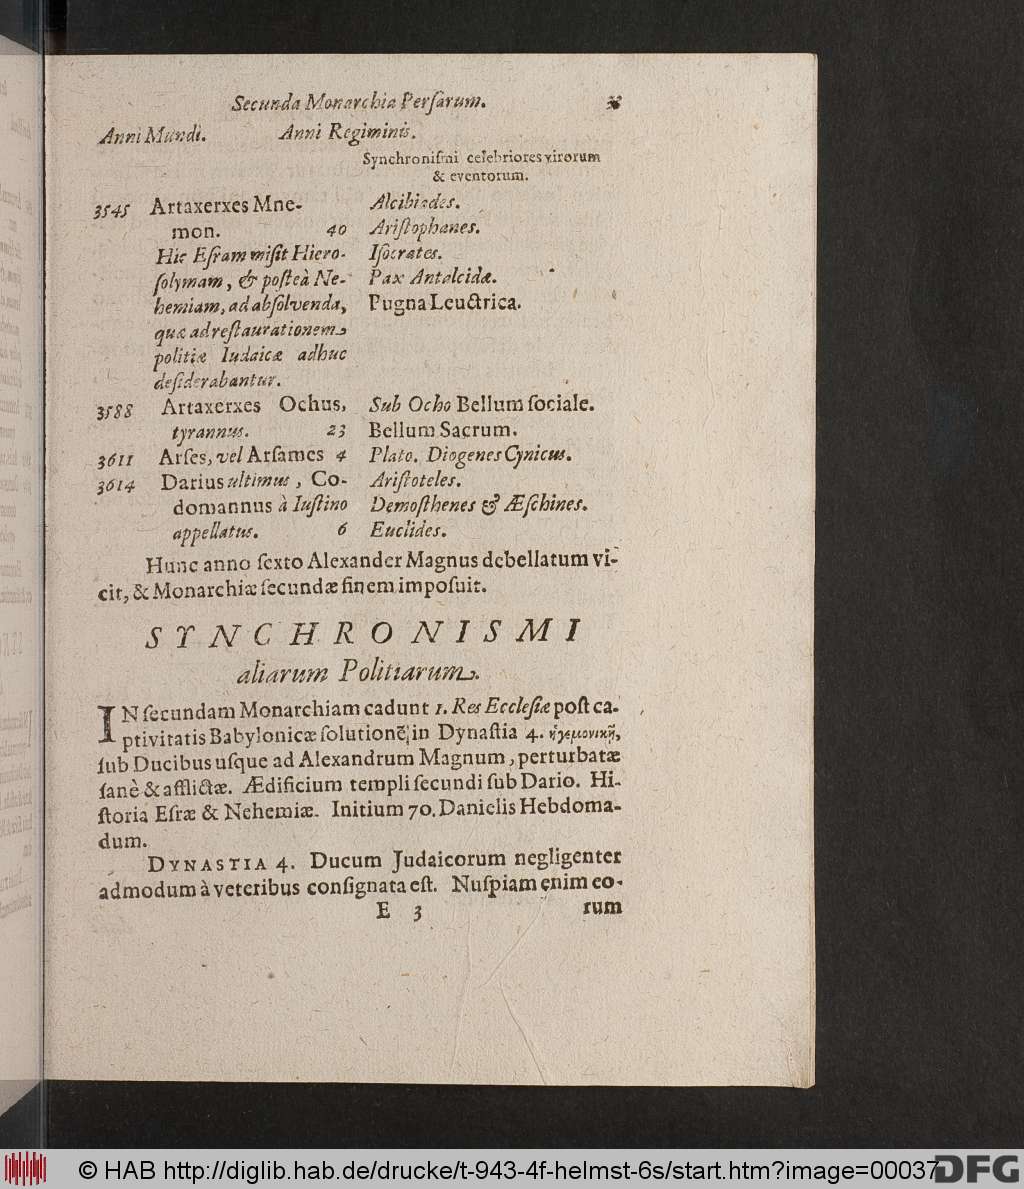 Secunda Monarchia Perſarum.
Anni Mundi. Anni Regiminis.
Synchroniſmi celebriores virorum
& eventorum.
3545 Artaxerxes Mne- Alcibiades.
mon. 40 Ariſtophanes.
Hic Eſram miſit Hiero- Iſocrates.
ſolymam, & poſteà Ne- Pax Antalcidæ.
hemiam, ad abſolvenda, Pugna Leuctrica.
quæ ad reſtaurationem
politiæ Iudaicæ adhuc
deſiderabantur.
3588 Artaxerxes Ochus, Sub Ocho Bellum ſociale.
tyrannus. 23 Bellum Sacrum.
3611 Arſes, vel Arſames 4 Plato. Diogenes Cynicus.
3614 Darius ultimus, Co- Ariſtoteles.
domannus à Iuſtino Demoſthenes & Æſchines.
appellatus. 6 Euclides.
Hunc anno ſexto Alexander Magnus debellatum vi-
cit, & Monarchiæ ſecundæ finem impoſuit.
SYNCHRONISMI
aliarum Politiarum.
IN ſecundam Monarchiam cadunt 1. Res Eccleſiæ poſt ca-
ptivitatis Babylonicæ ſolutionē, in Dynaſtia 4. ἡγεμονικῇ,
ſub Ducibus uſque ad Alexandrum Magnum, perturbatæ
ſanè & afflictæ. Ædificium templi ſecundi ſub Dario. Hi-
ſtoria Eſræ & Nehemiæ. Initium 70. Danielis Hebdoma-
dum.
DYNASTIA 4. Ducum Judaicorum negligenter
admodum à veteribus conſignata eſt. Nuſpiam enim eo-
E 3 rum
© HAB http://diglib.hab.de/drucke/t-943-4f-helmst-6s/start.htm?image=00037
DFG